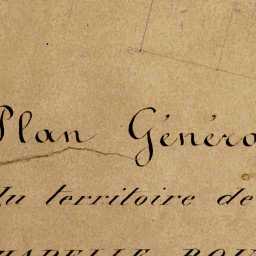 Plan Généra
du territoire de
CHAPELLE ROU